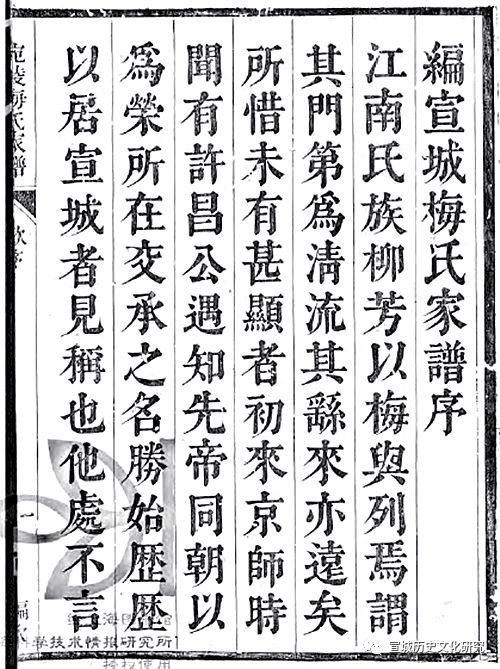 編宣城梅氏家譜序
江南氏族柳芳以梅與列焉謂
其門第爲淸流其繇來亦遠矣
所惜未有甚顯者初來京師時
聞有許昌公遇知先帝同朝以
爲榮所在交承之名勝始歴歴
以居宣城者見稱也他處不言
宛陵梅氏家譜
一
科学技术情报研究所
授权使用
宣城历史文化研究